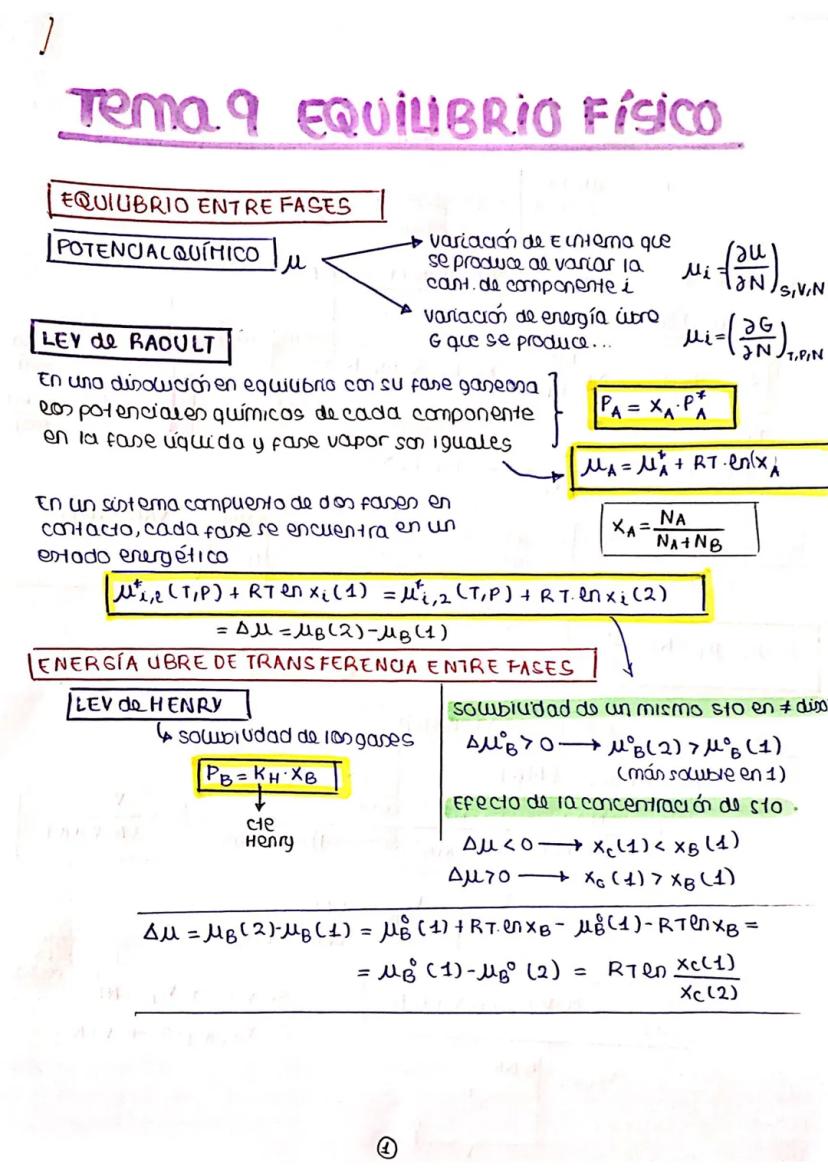 1
Tema 9 EQUILIBRIO FÍSICO
EQUILIBRIO ENTRE FASES
POTENCIAL QUÍMICO μ
variación de E interna que
se produce al variar la
cant. de componente i
μi = (∂U/∂N)S,V,N
variación de energía libre
G que se produce...
μi = (∂G/∂N)T,P,N
LEY de RAOULT
En una disolución en equilibrio con su fase gaseosa
los potenciales químicos de cada componente
en la fase líquida y fase vapor son iguales
PA = XA · P*A
μA = μ*A + RT · ln(xA
En un sistema compuesto de dos fases en
contacto, cada fase se encuentra en un
estado energético
XA = NA / NA + NB
μ*i,l (T,P) + RT ln xi (1) = μ*i,2 (T,P) + RT. ln xi (2)
= Δμ = μB(2) - μB(1)
ENERGÍA LIBRE DE TRANSFERENCIA ENTRE FASES
LEY de HENRY
↳ solubilidad de los gases
PB = KH · XB
cte
Henry
solubilidad de un mismo sto en ≠ diso
Δμ°B > 0 → μ°B(2) > μ°B(1)
(más soluble en 1)
Efecto de la concentración de sto.
Δμ < 0 → xc(1) < xB(1)
Δμ > 0 → xG(1) > xB(1)
Δμ = μB(2) - μB(1) = μ°B(1) + RT. ln xB - μ°B(1) - RT ln xB =
= μ°B (1) - μB° (2) = RT ln xc(1) / xc(2)
1